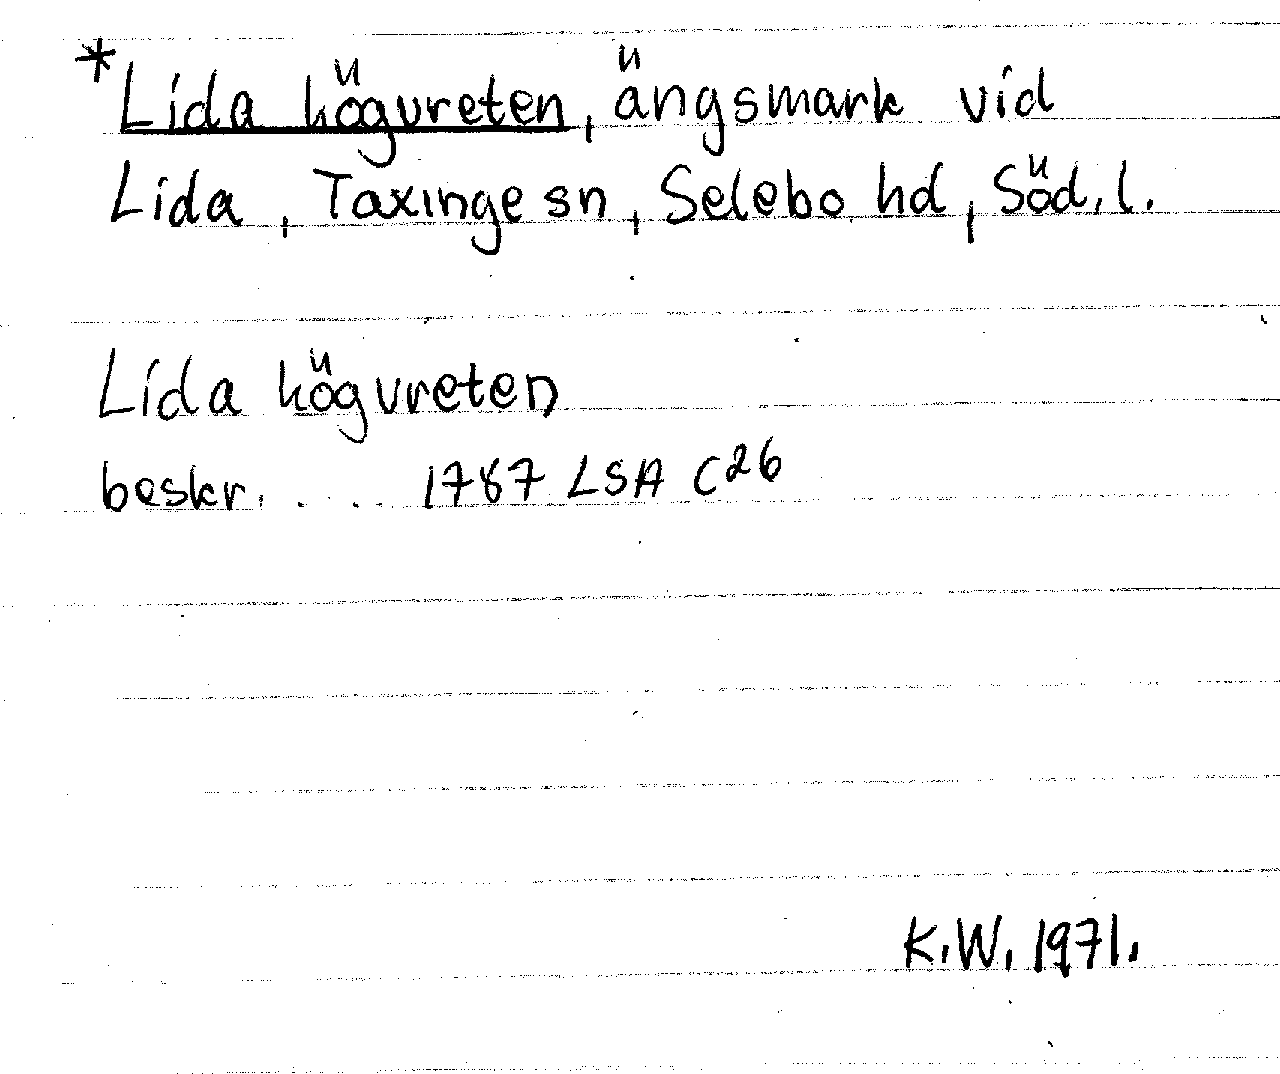 *Lida högvreten, ängsmark vid
Lida, Taxinge sn, Selebo hd, Söd.l.
Lida högvreten
beskr. .... 1787 LSA C26
K.W. 1971.